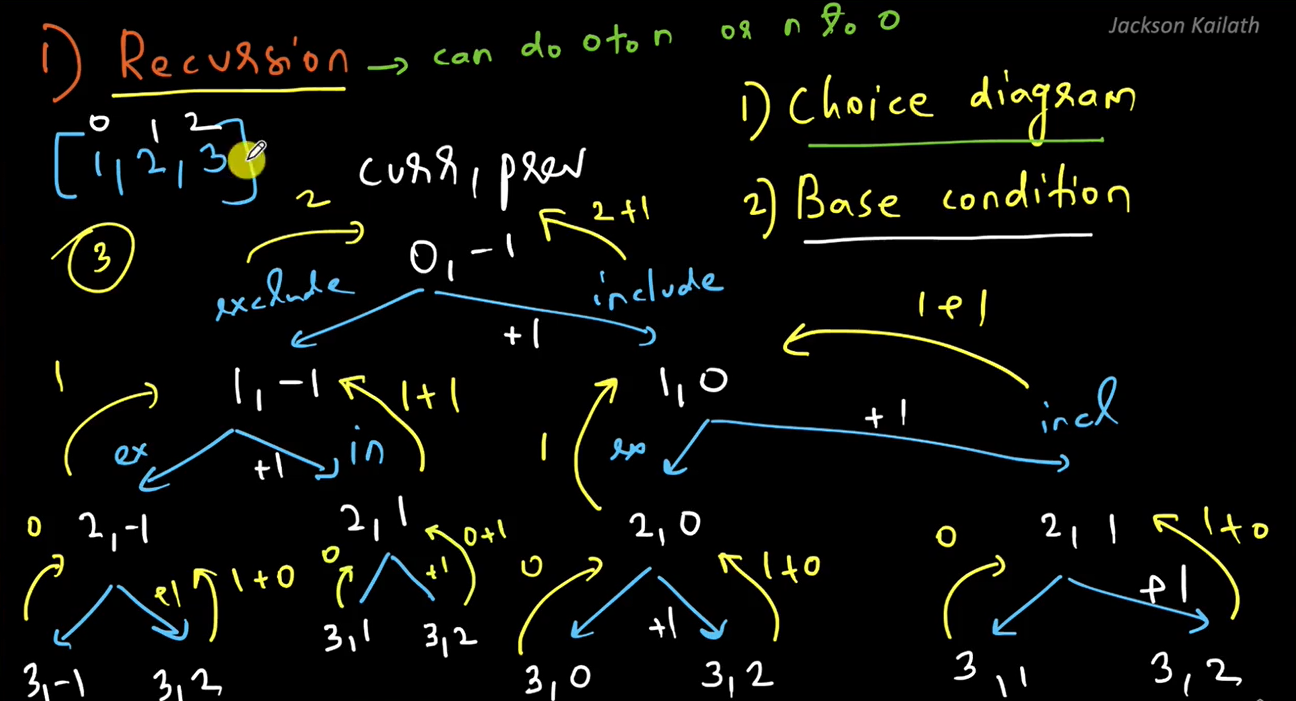 Jackson Kailath
1) Recursion → can do 0 to n or n to 0
1) Choice diagram
2) Base condition
0 1 2
[1, 2, 3]
curr, prev
3
2
2+1
0, -1
exclude
include
+1
1+1
1
1, -1
1+1
1, 0
+1
incl
ex
+1
in
1
ex
0
2, -1
2, 1
0+1
2, 0
0
2, 1
1+0
+1
1+0
0
+1
0
1+0
+1
+1
3, -1
3, 2
3, 1
3, 2
3, 0
3, 2
3, 1
3, 2